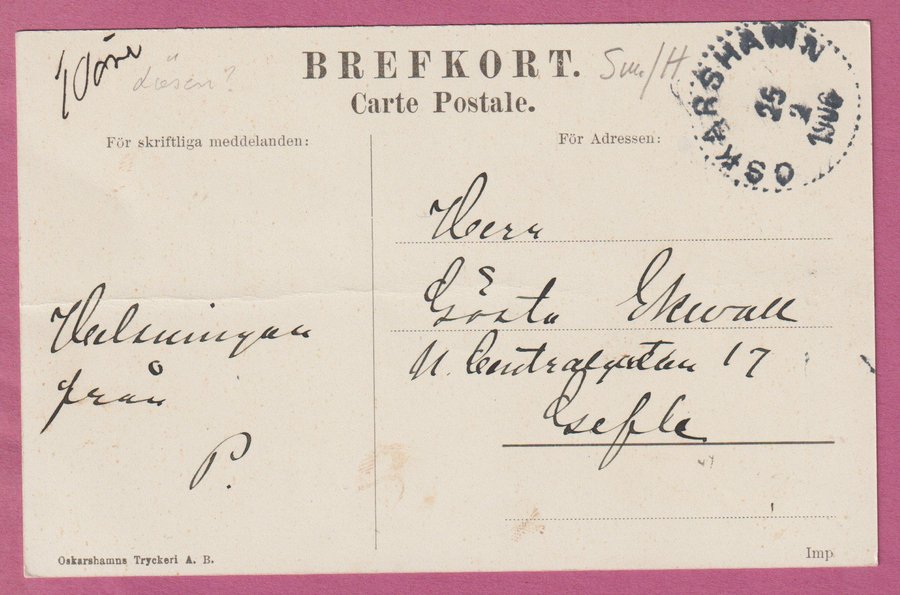 10 öre
BREFKORT.
Sm/H
Carte Postale.
OSKARSHAMN
25
2
1906
För skriftliga meddelanden:
För Adressen:
Helsningar
från
P.
Herr
Gösta Ekwall
N. Centralgatan 17
Gefle
Oskarshamns Tryckeri A. B.
Imp